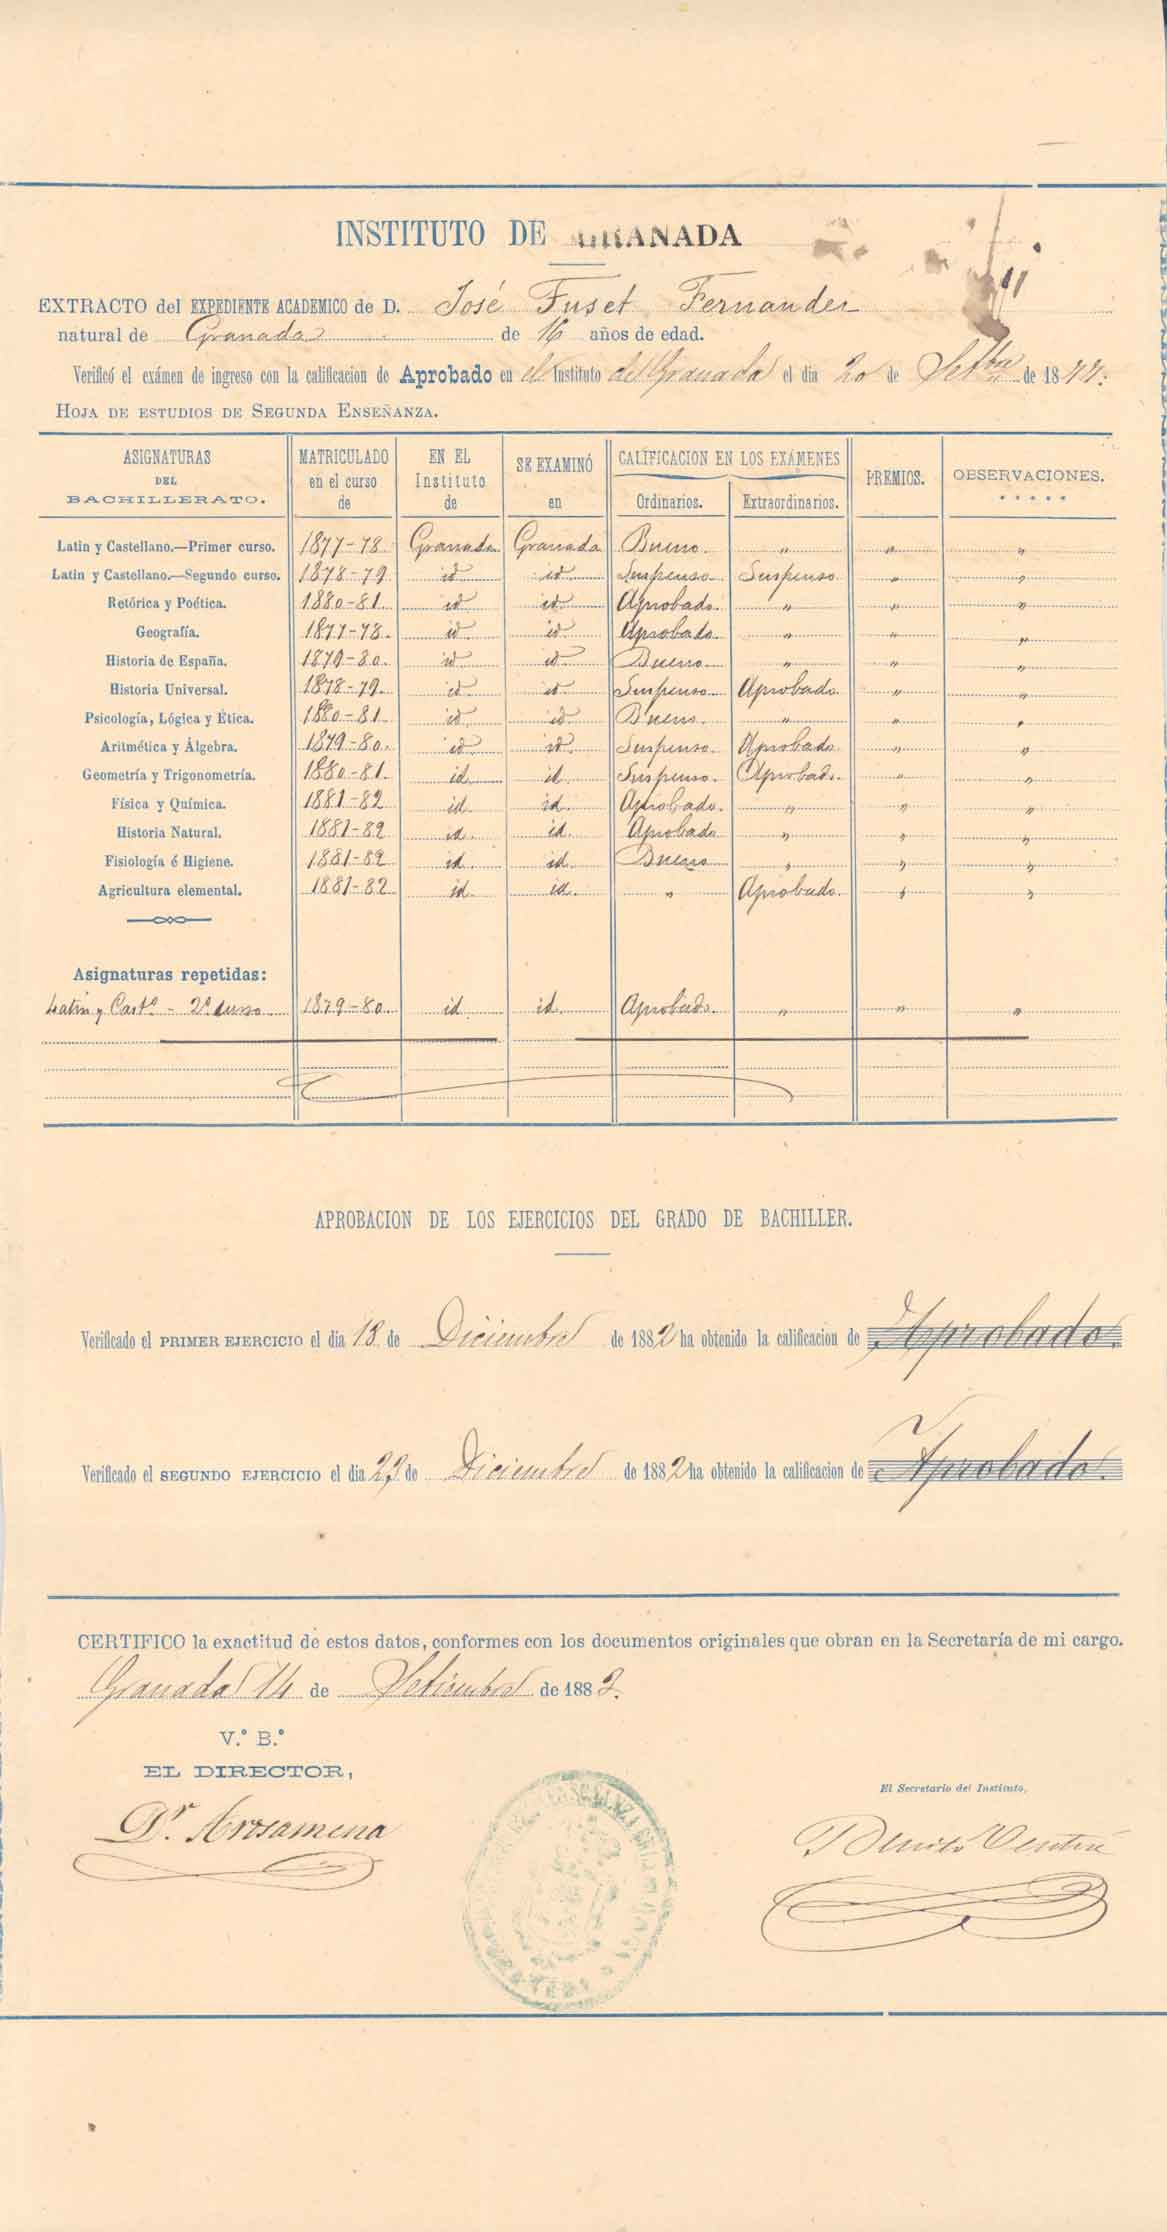 INSTITUTO DE GRANADA
EXTRACTO del EXPEDIENTE ACADEMICO de D. José Fuset Fernandez
natural de Granada de 16 años de edad.
Verificó el exámen de ingreso con la calificacion de Aprobado en el Instituto de Granada el dia 20 de Setbre de 1877.
HOJA DE ESTUDIOS DE SEGUNDA ENSEÑANZA.
ASIGNATURAS DEL BACHILLERATO. MATRICULADO en el curso de EN EL Instituto de SE EXAMINÓ en CALIFICACION EN LOS EXÁMENES Ordinarios. Extraordinarios. PREMIOS. OBSERVACIONES.
Latin y Castellano.—Primer curso. 1877-78 Granada Granada Bueno. " " "
Latin y Castellano.—Segundo curso. 1878-79 id id Suspenso Suspenso " "
Retórica y Poética. 1880-81 id id Aprobado " " "
Geografía. 1877-78. id id Aprobado " " "
Historia de España. 1879-80. id id Bueno " " "
Historia Universal. 1878-79. id id Suspenso Aprobado " "
Psicología, Lógica y Ética. 1880-81 id id Bueno. " " "
Aritmética y Álgebra. 1879-80. id id Suspenso Aprobado " "
Geometría y Trigonometría. 1880-81. id id Suspenso. Aprobado. " "
Física y Química. 1881-82 id. id. Aprobado. " " "
Historia Natural. 1881-82 id. id. Aprobado " " "
Fisiología é Higiene. 1881-82 id. id. Bueno " " "
Agricultura elemental. 1881-82 id. id. " Aprobado. " "
Asignaturas repetidas:
Latin y Castº - 2º curso 1879-80. id. id. Aprobado. " " "
APROBACION DE LOS EJERCICIOS DEL GRADO DE BACHILLER.
Verificado el PRIMER EJERCICIO el dia 18 de Diciembre de 1882 ha obtenido la calificacion de Aprobado.
Verificado el SEGUNDO EJERCICIO el dia 23 de Diciembre de 1882 ha obtenido la calificacion de Aprobado.
CERTIFICO la exactitud de estos datos, conformes con los documentos originales que obran en la Secretaría de mi cargo.
Granada 14 de Setiembre de 1883.
V.º B.º
EL DIRECTOR,
El Secretario del Instituto,
Dr. Arosamena
Benito Ventué